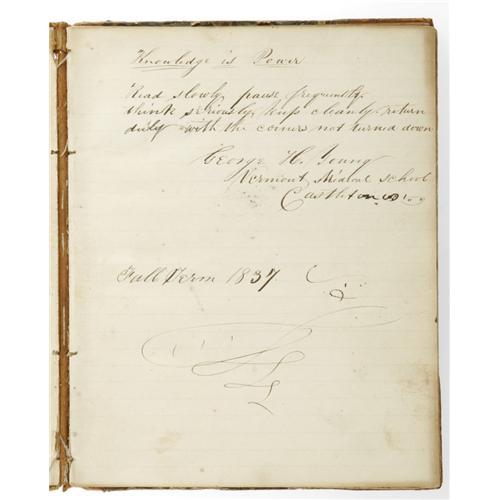 Knowledge is Power
Read slowly, pause frequently,
think seriously, keep cleanly, return
duly with the corners not turned down
George H. Young
Vermont Medical School
Castleton
Fall Term 1837